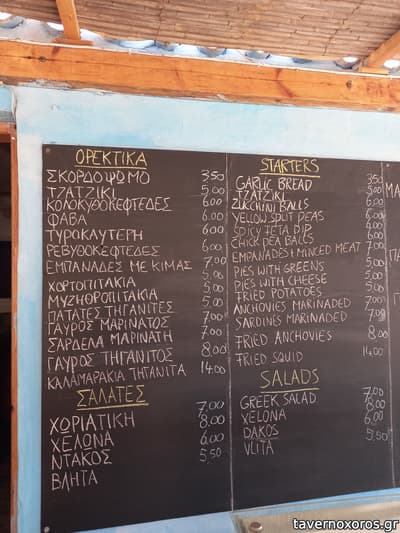 ΟΡΕΚΤΙΚΑ
ΣΚΟΡΔΟΨΩΜΟ 3,50
ΤΖΑΤΖΙΚΙ 5,00
ΚΟΛΟΚΥΘΟΚΕΦΤΕΔΕΣ 6,00
ΦΑΒΑ 6,00
ΤΥΡΟΚΑΥΤΕΡΗ 6,00
ΡΕΒΥΘΟΚΕΦΤΕΔΕΣ 6,00
ΕΜΠΑΝΑΔΕΣ ΜΕ ΚΙΜΑΣ 7,00
ΧΟΡΤΟΠΙΤΑΚΙΑ 5,00
ΜΥΖΗΘΡΟΠΙΤΑΚΙΑ 5,00
ΠΑΤΑΤΕΣ ΤΗΓΑΝΙΤΕΣ 5,00
ΓΑΥΡΟΣ ΜΑΡΙΝΑΤΟΣ 7,00
ΣΑΡΔΕΛΑ ΜΑΡΙΝΑΤΗ 7,00
ΓΑΥΡΟΣ ΤΗΓΑΝΙΤΟΣ 8,00
ΚΑΛΑΜΑΡΑΚΙΑ ΤΗΓΑΝΙΤΑ 14,00
ΣΑΛΑΤΕΣ
ΧΩΡΙΑΤΙΚΗ 7,00
ΧΕΛΩΝΑ 8,00
ΝΤΑΚΟΣ 6,00
ΒΛΗΤΑ 5,50
STARTERS
GARLIC BREAD 3,50
TZATZIKI 5,00
ZUCCHINI BALLS 6,00
YELLOW SPLIT PEAS 6,00
SPICY FETA DIP 6,00
CHICK PEA BALLS 6,00
EMPANADES MINCED MEAT 7,00
PIES WITH GREENS 5,00
PIES WITH CHEESE 5,00
FRIED POTATOES 5,00
ANCHOVIES MARINADED 7,00
SARDINES MARINADED 7,00
FRIED ANCHOVIES 8,00
FRIED SQUID 14,00
SALADS
GREEK SALAD 7,00
XELONA 8,00
DAKOS 6,00
VLITA 5,50
tavernoxoros.gr